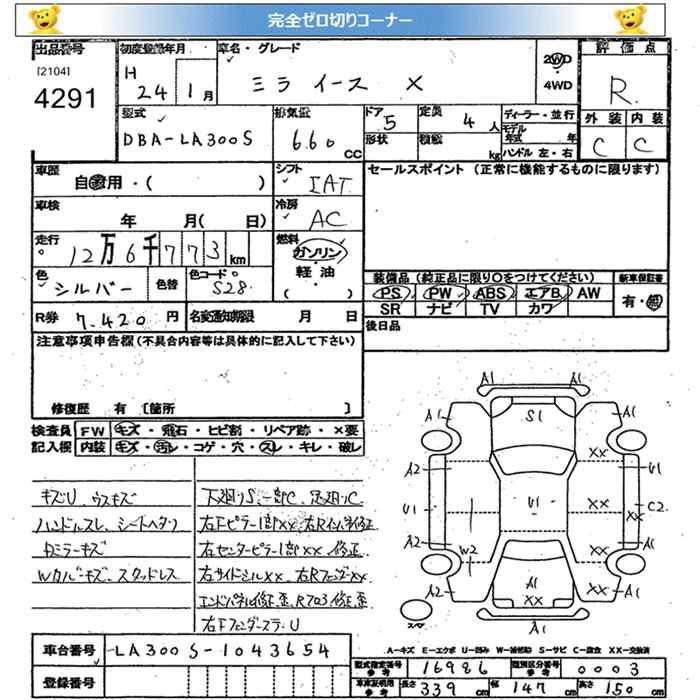 完全ゼロ切りコーナー
出品番号
[2104]
4291
初度登録年月
H 24年 1月
車名・グレード
ミラ イース X
2WD
4WD
評価点
R
型式
DBA-LA300S
排気量
660 cc
ドア 5
形状
定員 4 人
積載 kg
ディーラー・並行
モデル年式 年
ハンドル 左・右
外装 内装
C C
車歴
自家用・( )
シフト
IAT
セールスポイント (正常に機能するものに限ります)
車検
年 月( 日)
冷房
AC
走行
12万6千773km
燃料
ガソリン
軽油
( )
色
シルバー
色替
色コード
S28
装備品 (純正品に限り○をつけてください)
新車保証書
PS PW ABS エアB AW
有・無
SR ナビ TV カワ
R券 7,420 円
名変通知期限 月 日
後日品
注意事項申告欄 (不具合内容等は具体的に記入して下さい)
修復歴 有 [箇所 ]
検査員 FW キズ・飛石・ヒビ割・リペア跡・×要
記入欄 内装 キズ・汚れ・コゲ・穴・スレ・キレ・破レ
キズU、ウスキズ
ハンドルスレ、シートヘタリ
Wカバーキズ、スタッドレス
下廻りS一部C、足廻りC
右Fピラー1部XX、右Rインナー修正
右センターピラー1部XX 修正
右サイドシルXX、右RフェンダーXX
エンドパネル修正、歪、Rフロア修正、歪
A1 A1
A1 S1 A1
XX
A2 U1
U1 XX C2
XX
A2 A1
W2 XX
A1
A1 XX A1
A1
スペア
A-キズ E-エクボ U-凹み W-補修跡 S-サビ C-腐食 XX-交換済
車台番号 LA300S-1043654
登録番号
型式指定番号 参考 16986
類別区分番号 参考 0003
車庫証明用 参考 長さ 339 cm 幅 147 cm 高さ 150 cm